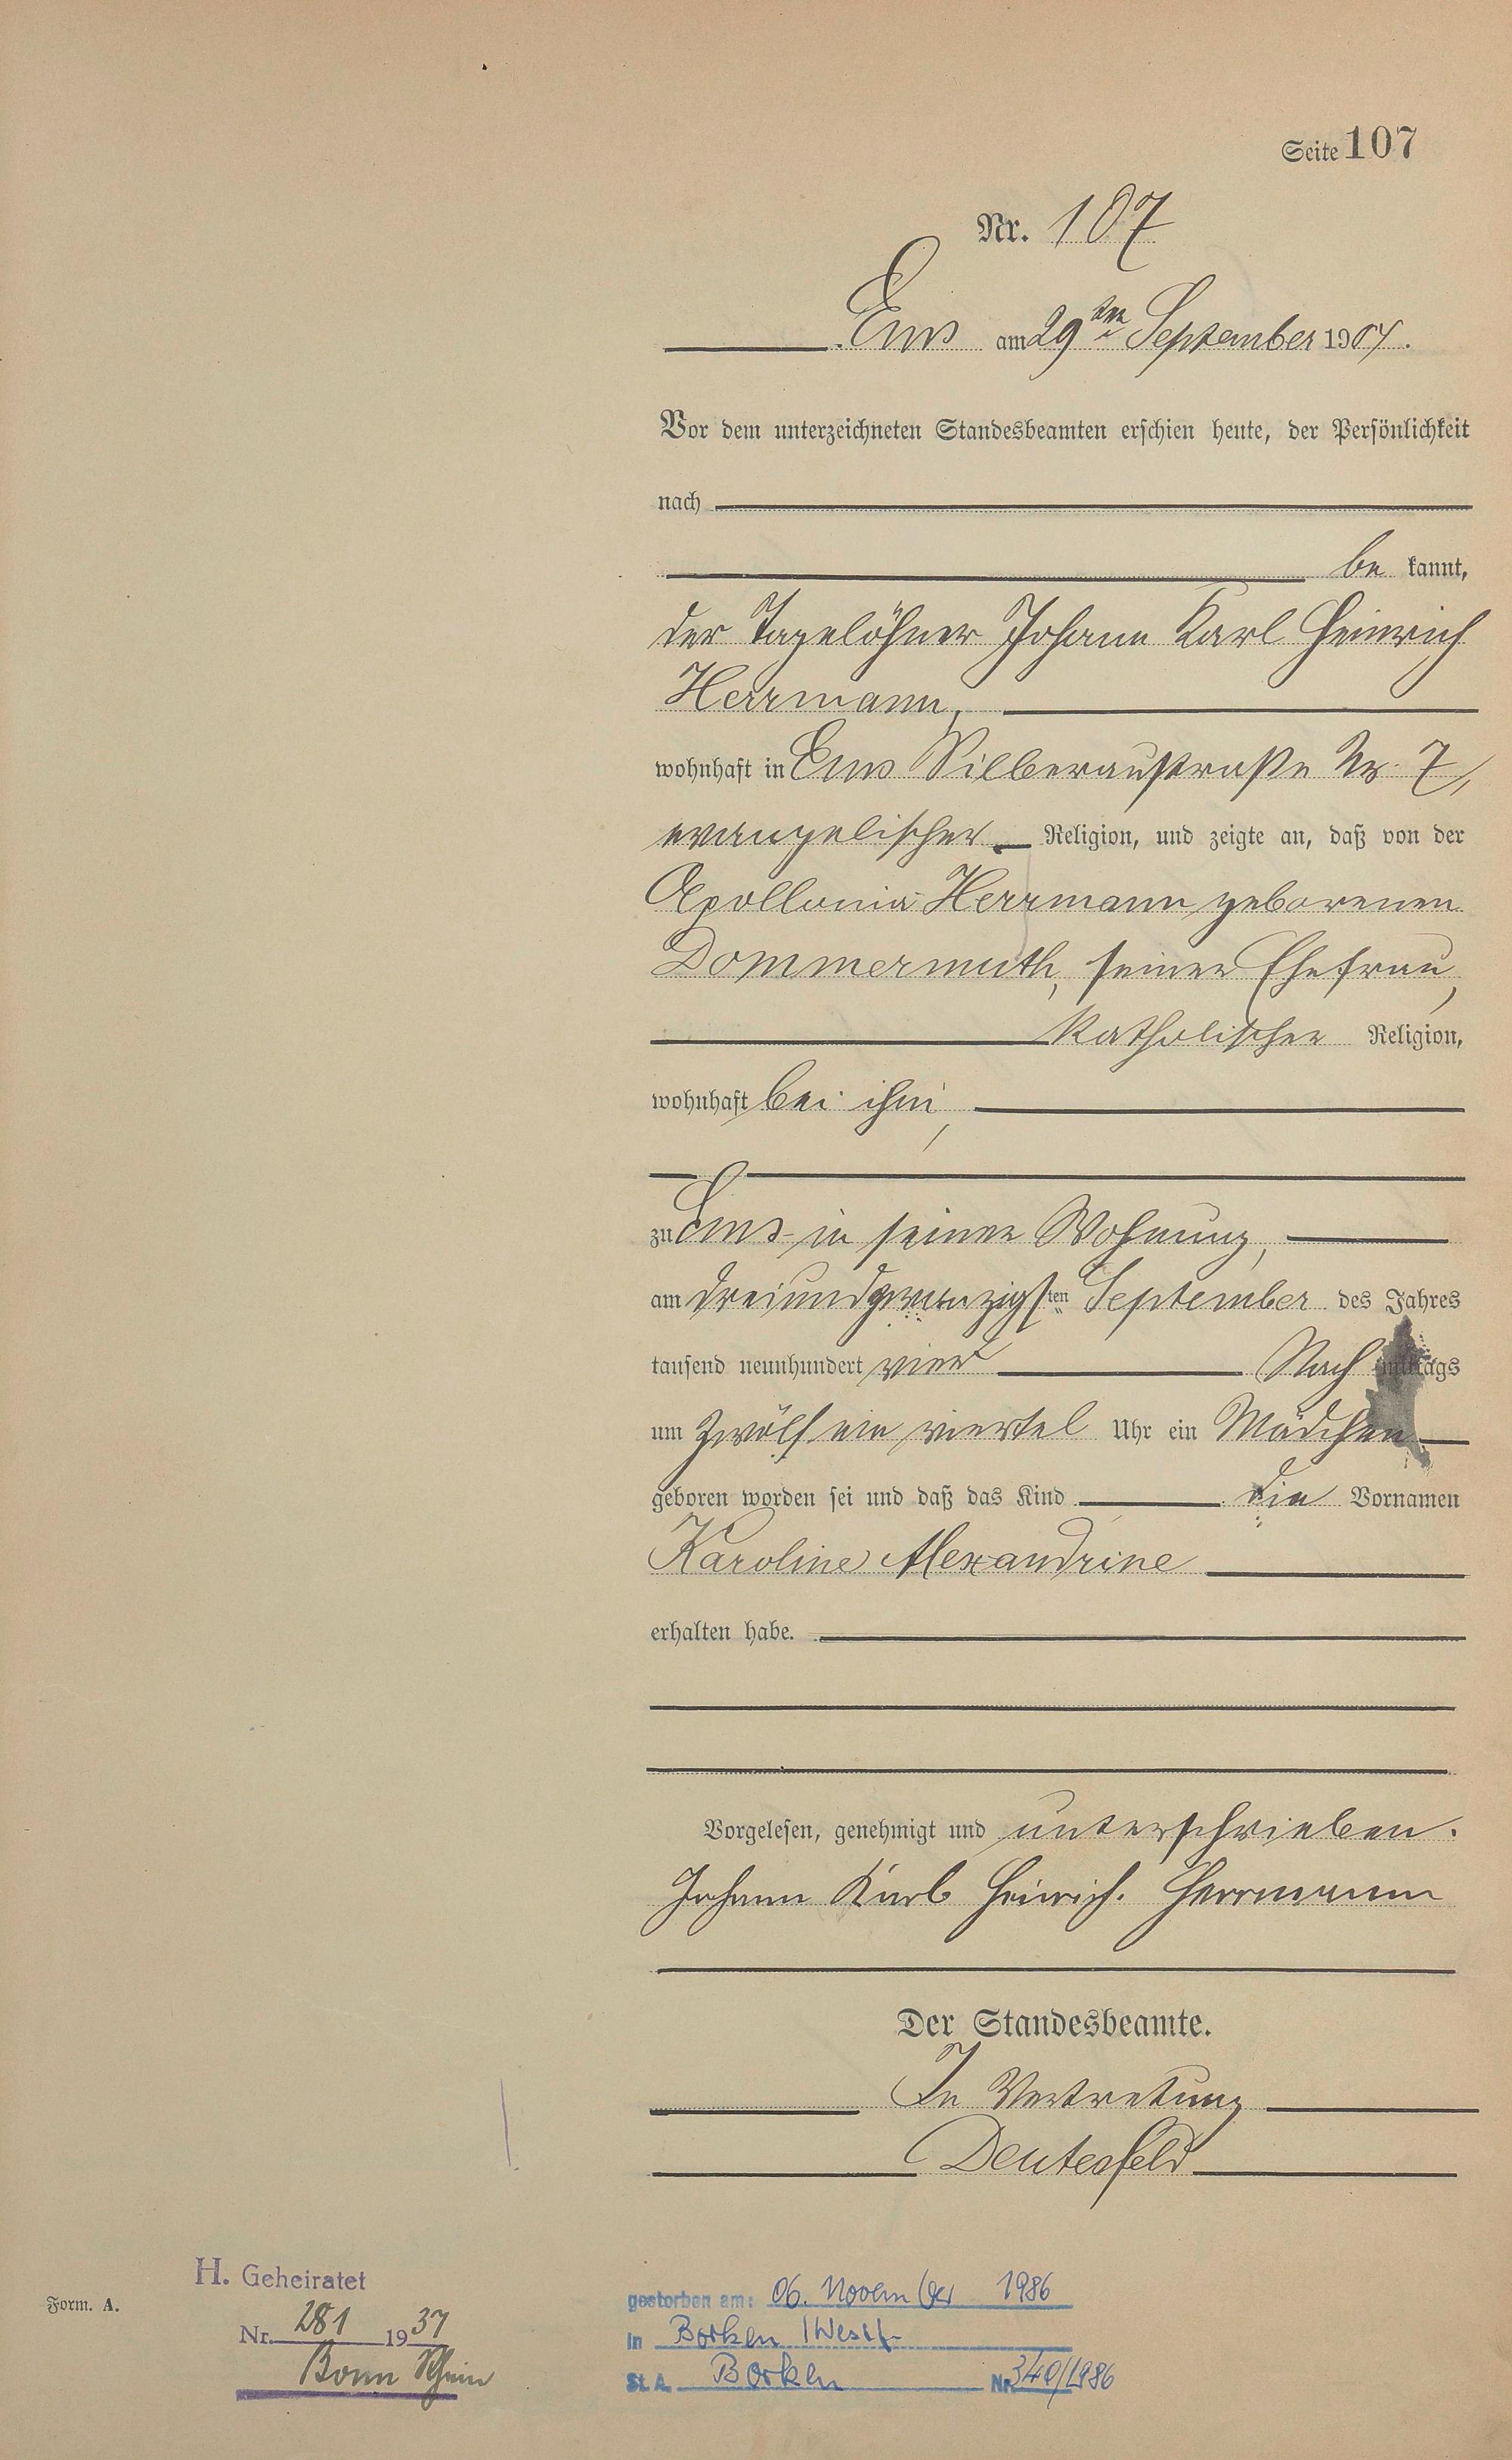 Seite 107
Nr. 107
Ems am 29ten September 1904.
Vor dem unterzeichneten Standesbeamten erschien heute, der Persönlichkeit
nach
be kannt,
der Tagelöhner Johann Karl Heinrich
Herrmann,
wohnhaft in Ems Silberaustraße Nr. 7,
evangelischer Religion, und zeigte an, daß von der
Apollonia Herrmann geborenen
Dommermuth, seiner Ehefrau,
katholischer Religion,
wohnhaft bei ihm,
zu Ems in seiner Wohnung,
am dreiundzwanzigsten September des Jahres
tausend neunhundert vier Nach mittags
um zwölf ein viertel Uhr ein Mädchen
geboren worden sei und daß das Kind die Vornamen
Karoline Alexandrine
erhalten habe.
Vorgelesen, genehmigt und unterschrieben.
Johann Karl Heinrich. Herrmann
Der Standesbeamte.
In Vertretung
Deutesfeld
H. Geheiratet
Nr. 281 1937
Bonn Rhein
Form. A.
gestorben am: 06. November 1986
in Borken /Westf.
St. A. Borken Nr. 340/1986